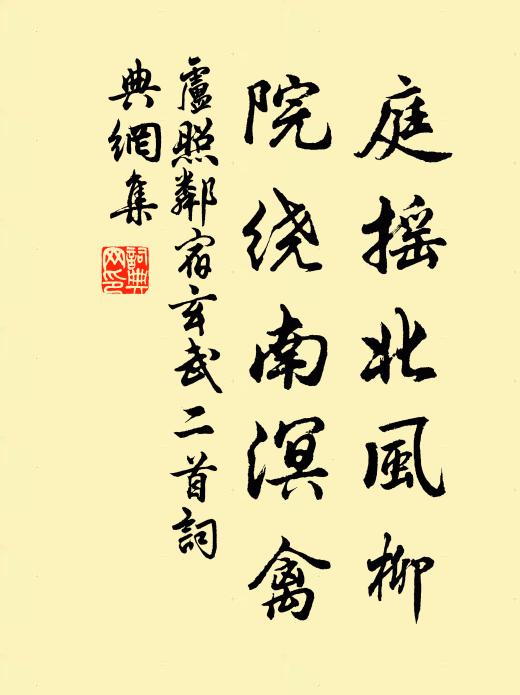 庭摇北風柳
院绕南溟禽
盧照鄰宿玄武二首詞
典網集
詞典
网印